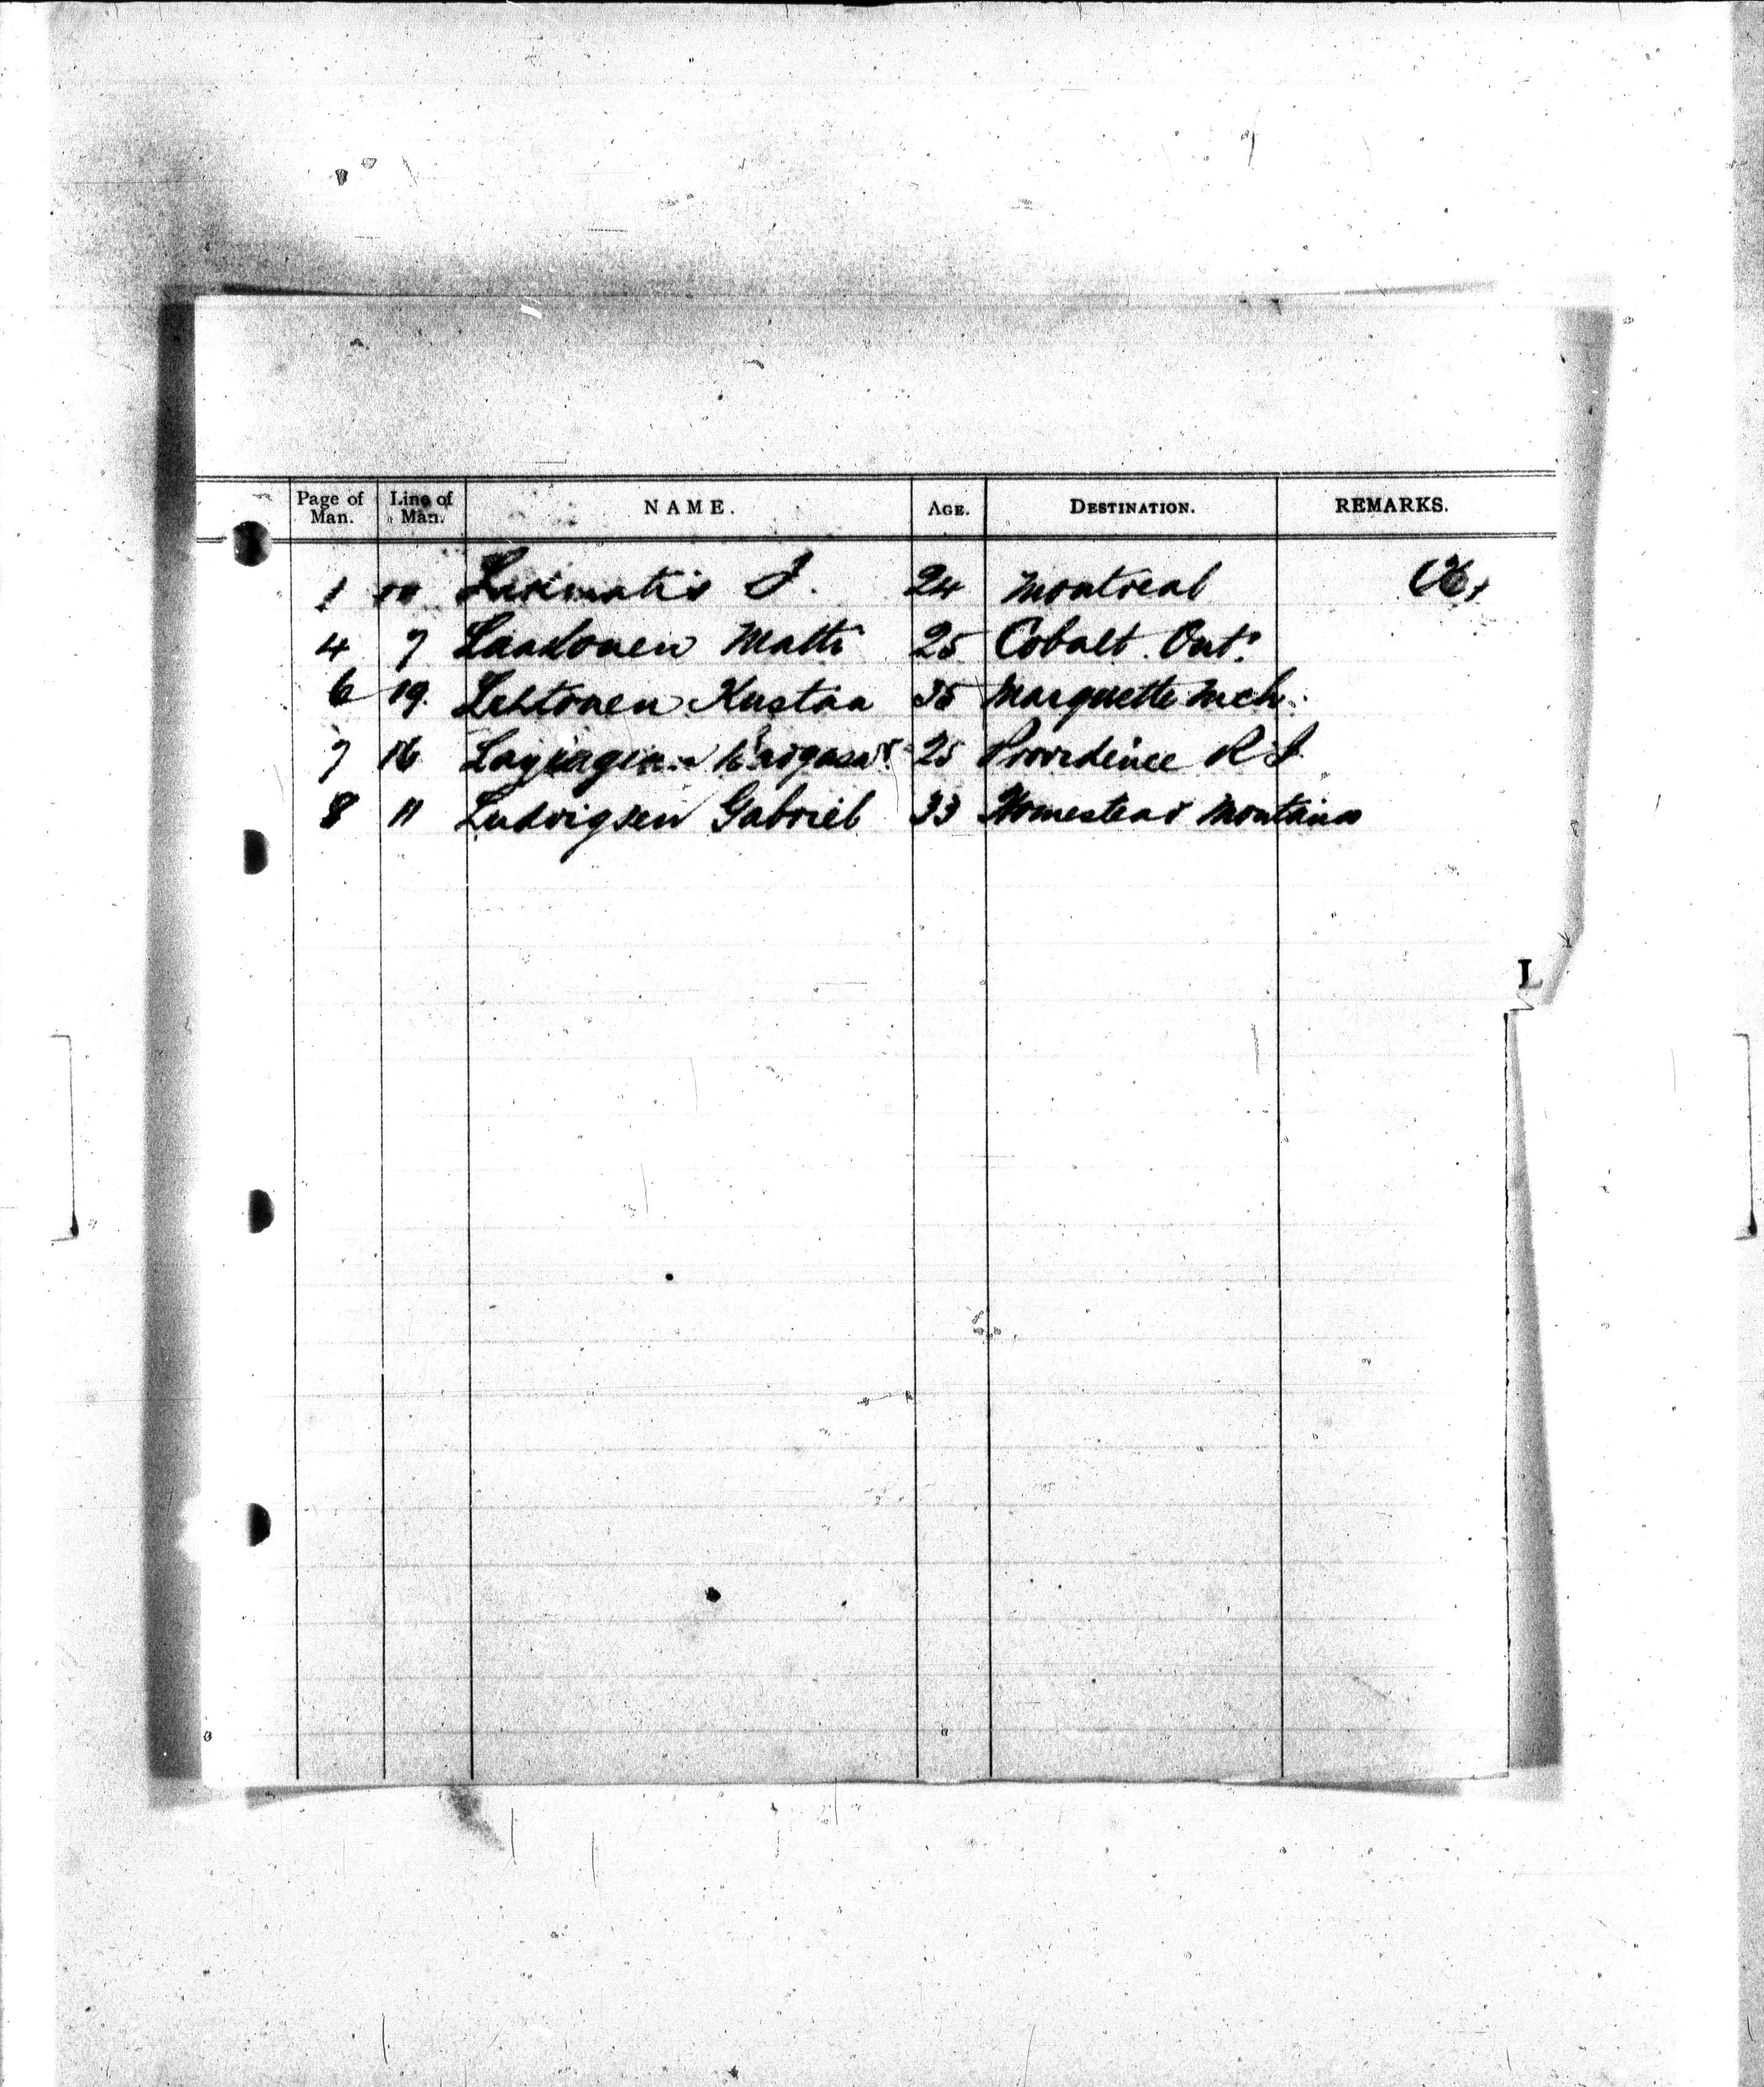 Page of Man. Line of Man. NAME. AGE. DESTINATION. REMARKS.
1 J. 24 Montreal
4 7 Laakonen Matti 25 Cobalt. Ont.
6 19. Lehtonen Kustaa 35 Marquette Mch.
7 16 25 Providence R I
8 11 Ludvigsen Gabriel 33 Homestead Montana
L